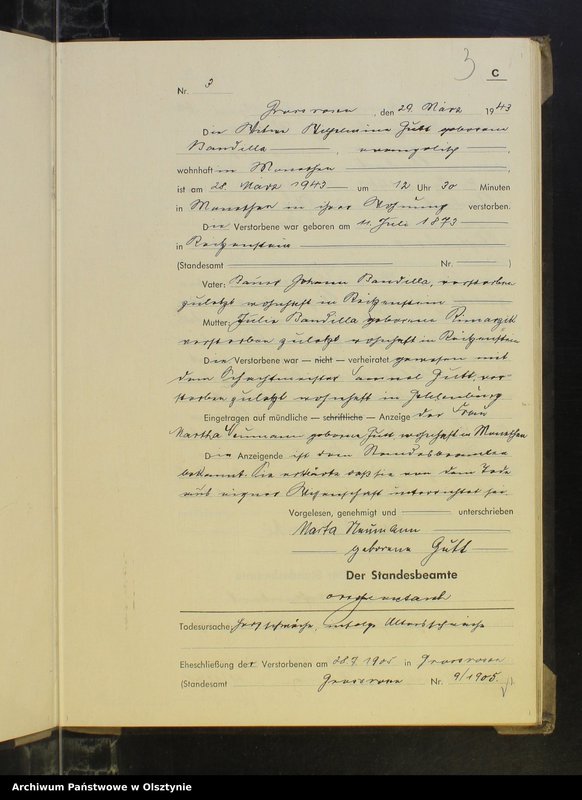 3
C
Nr. 3
Grossrosen, den 29. März 1943
Die Witwe Wilhelmine Gutt geborene
Bandilla, evangelisch,
wohnhaft in Monethen,
ist am 28. März 1943 um 12 Uhr 30 Minuten
in Monethen in ihrer Wohnung verstorben.
Die Verstorbene war geboren am 11. Juli 1873
in Reitzenstein
(Standesamt Nr. )
Vater: Johann Bandilla, verstorben
zuletzt wohnhaft in Reitzenstein
Mutter: Julie Bandilla geborene
verstorben zuletzt wohnhaft in Reitzenstein
Die Verstorbene war — nicht — verheiratet gewesen mit
dem Schachtmeister Gutt, ver-
storben zuletzt wohnhaft in
Eingetragen auf mündliche — schriftliche — Anzeige der Frau
Martha Neumann geborene Gutt wohnhaft in Monethen
Die Anzeigende ist dem Standesbeamten
bekannt. Sie erklärte daß sie von dem Tode
aus eigner Wissenschaft unterrichtet sei.
Vorgelesen, genehmigt und unterschrieben
Marta Neumann
geborene Gutt
Der Standesbeamte
Todesursache: Herzschwäche, infolge Altersschwäche
Eheschließung der Verstorbenen am 28.7.1905 in Grossrosen
(Standesamt Grossrosen Nr. 9/1905.)
Archiwum Państwowe w Olsztynie